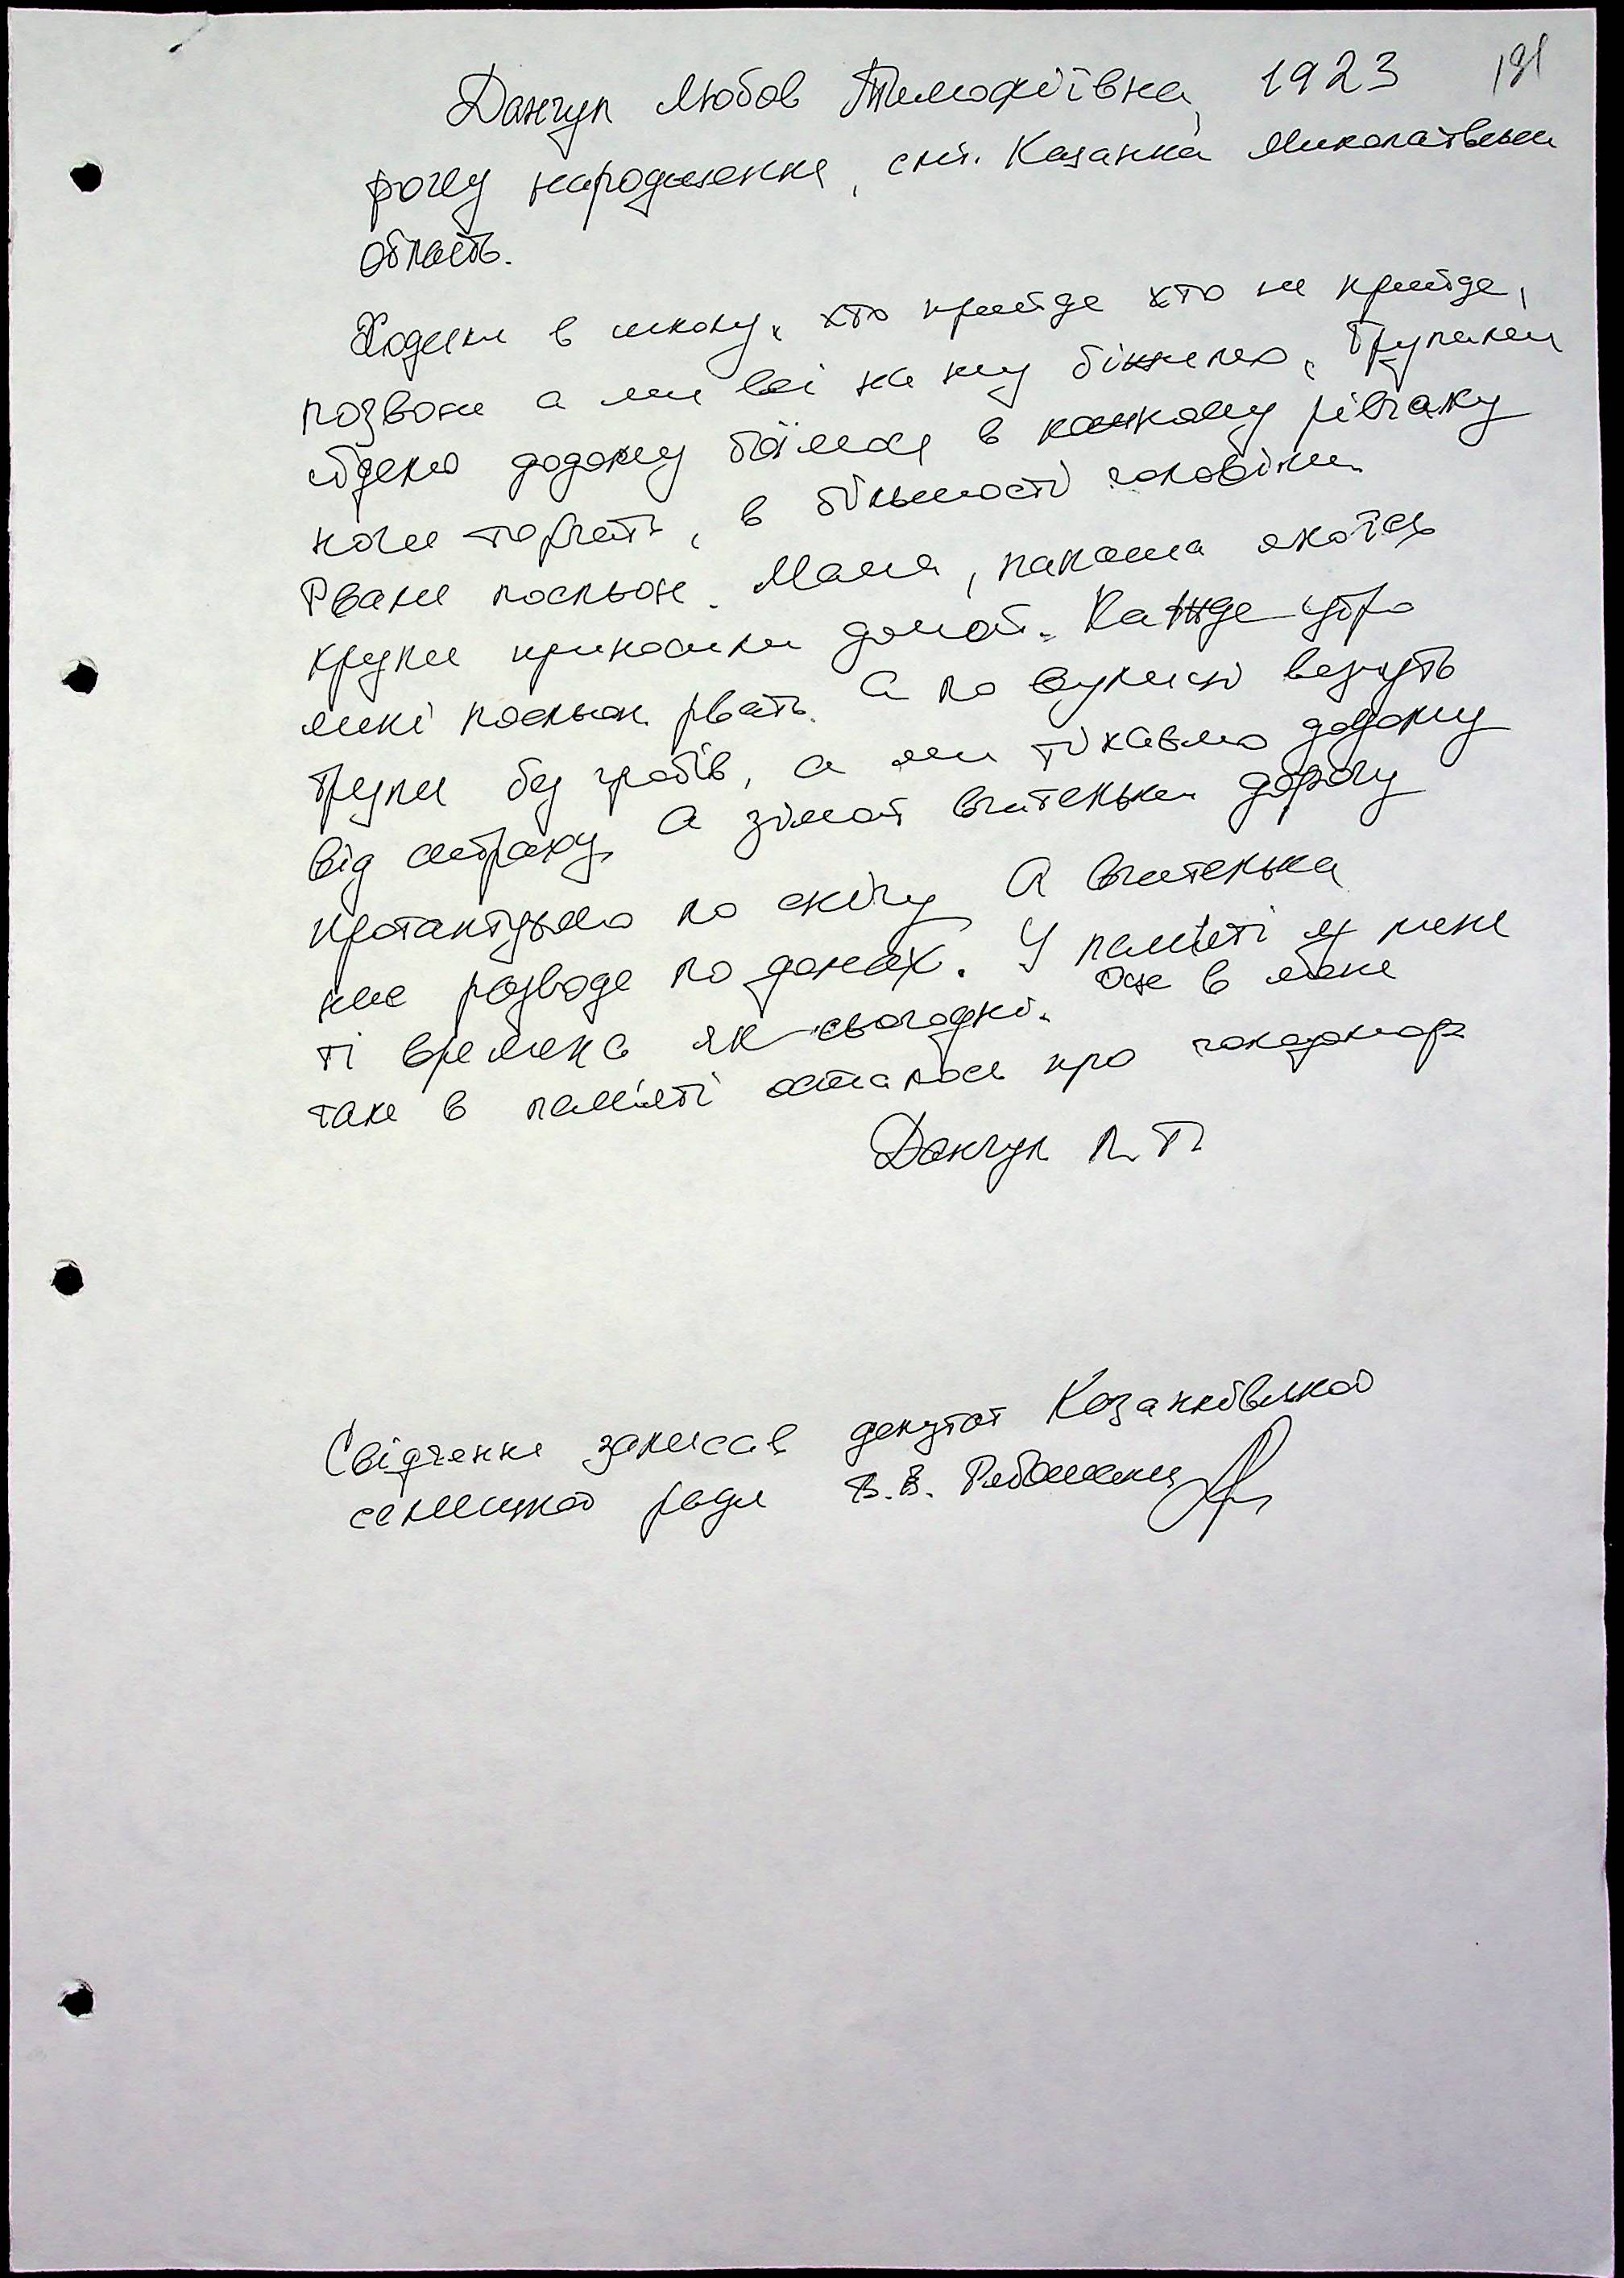 Данчул Любов Тимофіївна, 1923 191
року народження, смт. Казанка Миколаївська
область.
Ходили в школу, хто прийде хто не прийде,
позвоне а ми всі на ну біжимо, Трупами
ідемо додому боїмося в кожному рівчаку
ноги торчать, в більшості чоловіки.
Рвали пасльон. Мама, папаша якоїсь
крупи приносили домой. Кажде утро
мені пасльон рвать. А по вулиці везуть
трупи без гробів, а ми тікаємо додому
від страху. А зімой вчительки дорогу
протантуємо по снігу А вчителька
нас розводе по домах. У пам'яті у мене
ті времена як сьогодні. Оце в мене
таке в пам'яті осталось про голодомор
Данчул Л. Т.
Свідчення записав депутат Казанківської
селищної ради В.В.